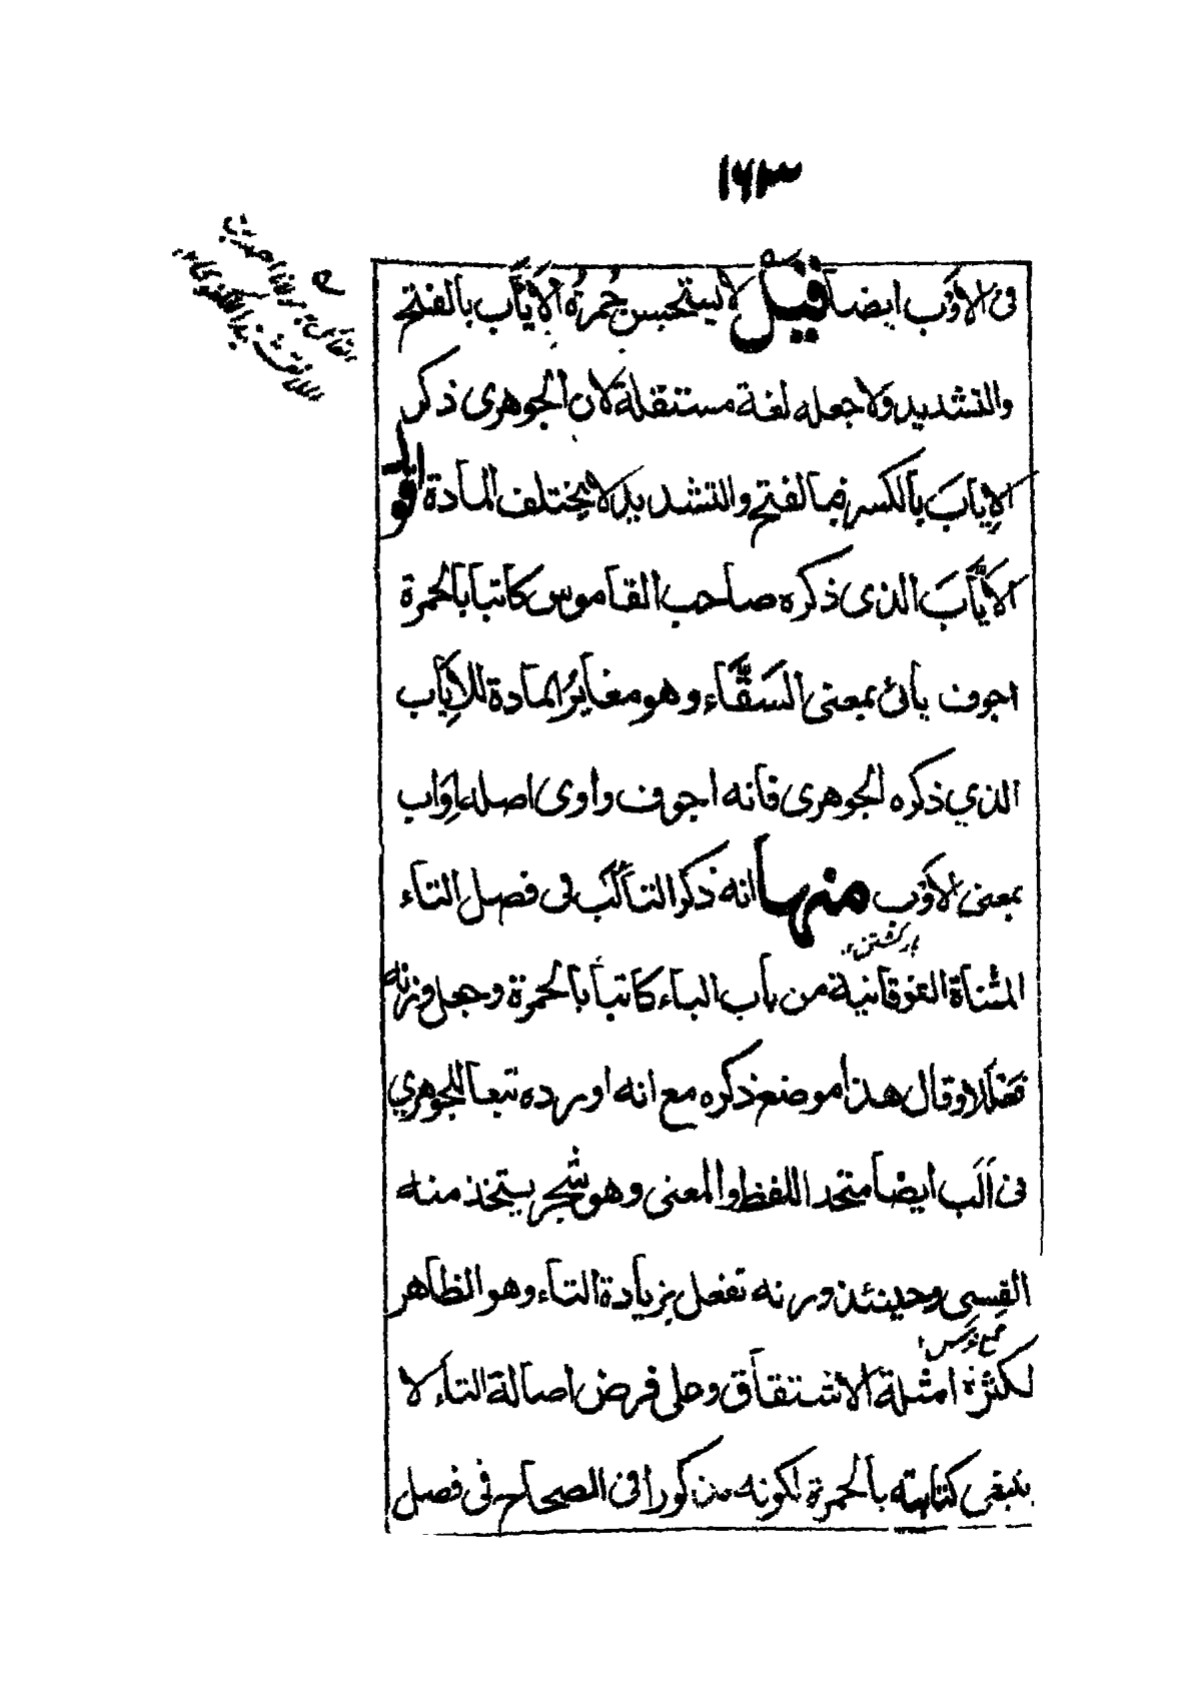 ۱۶۳
فى الأَوْب ايضا قيل لا يستحسن حُمرةُ الأَيَّاب بالفتح
والتشديد ولا جعله لغة مستقلة لان الجوهرى ذكر
الإِيابَ بالكسر فبالفتح والتشديد لا يختلف المادة اقول
الأَيَّابَ الذى ذكره صاحب القاموس كاتبا بالحمرة
اجوف يائى بمعنى السَقَّاء وهو مغايرُ المادة للإِيَاب
الذي ذكره الجوهرى فانه اجوف واوى اصله اِوَاب
بمعنى الأَوْب منها انه ذكر التَألَب فى فصل التاء
برگشتن
المثناة الفوقانية من باب الباء كاتبا بالحمرة وجعل وزنه
فَعْلَلا وقال هذا موضع ذكره مع انه اورده تبعا للجوهري
فى اَلَب ايضا متحد اللفظ والمعنى وهو شجر يتخذ منه
القسى وحينئذ وزنه تفعل بزيادة التاء وهو الظاهر
جمع قوس
لكثرة امثلة الاشتقاق وعلى فرض اصالة التاء لا
ينبغى كتابته بالحمرة لكونه مذكورا فى الصحاح فى فصل